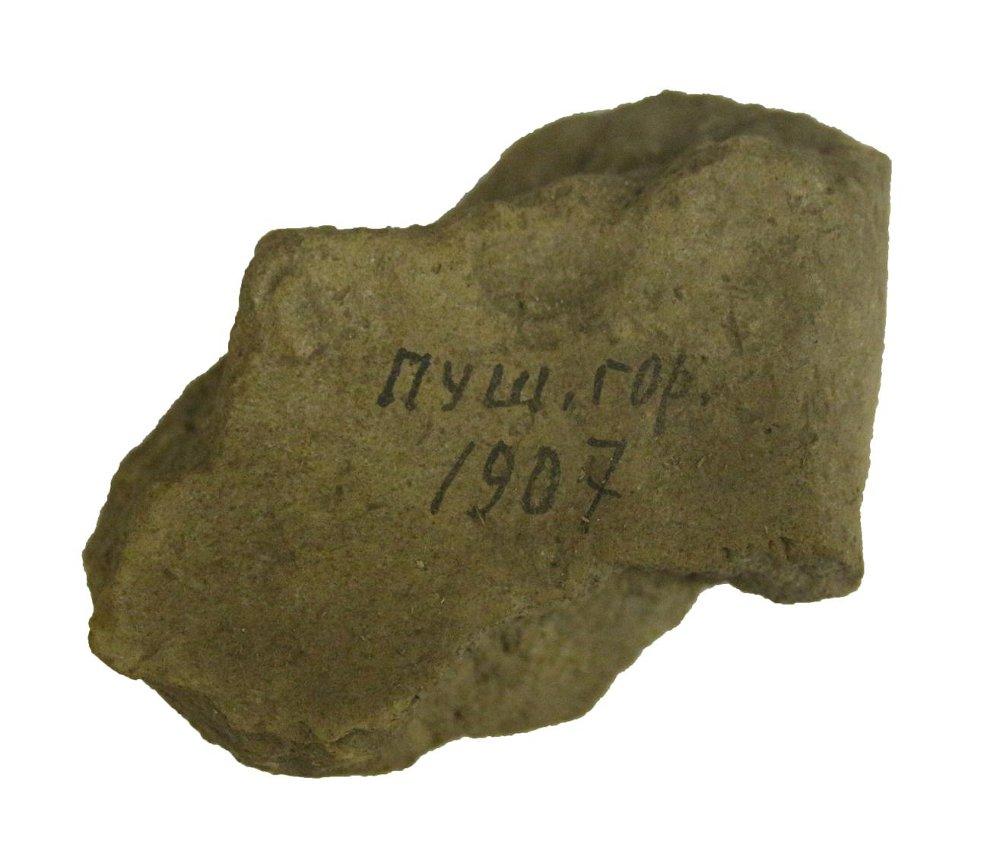 ПУШ. ГОР.
1907